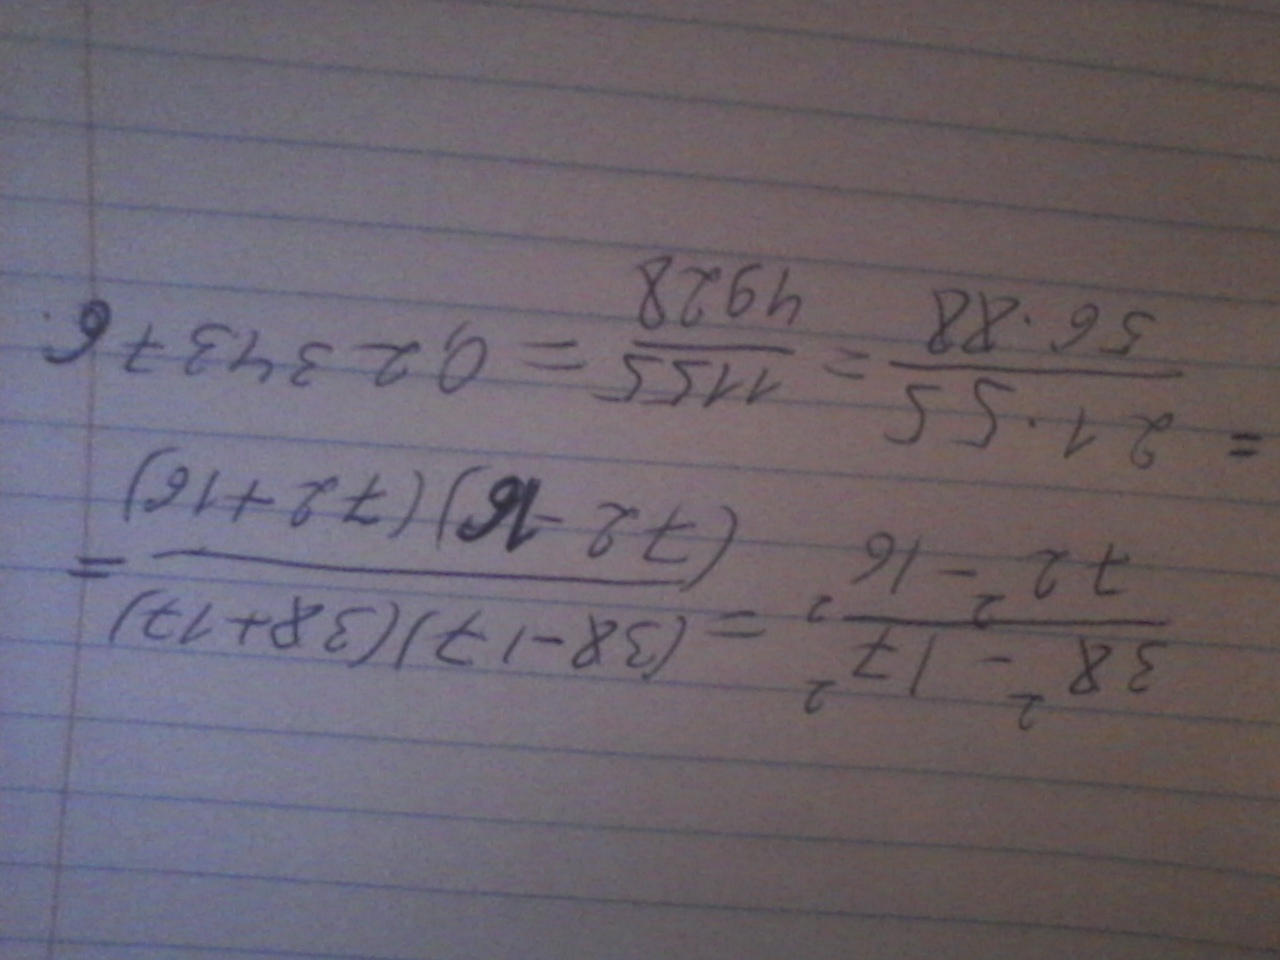 38² - 17² / 72² - 16² = (38-17)(38+17) / (72-16)(72+16) =
= 21·55 / 56·88 = 1155 / 4928 = 0,234376.